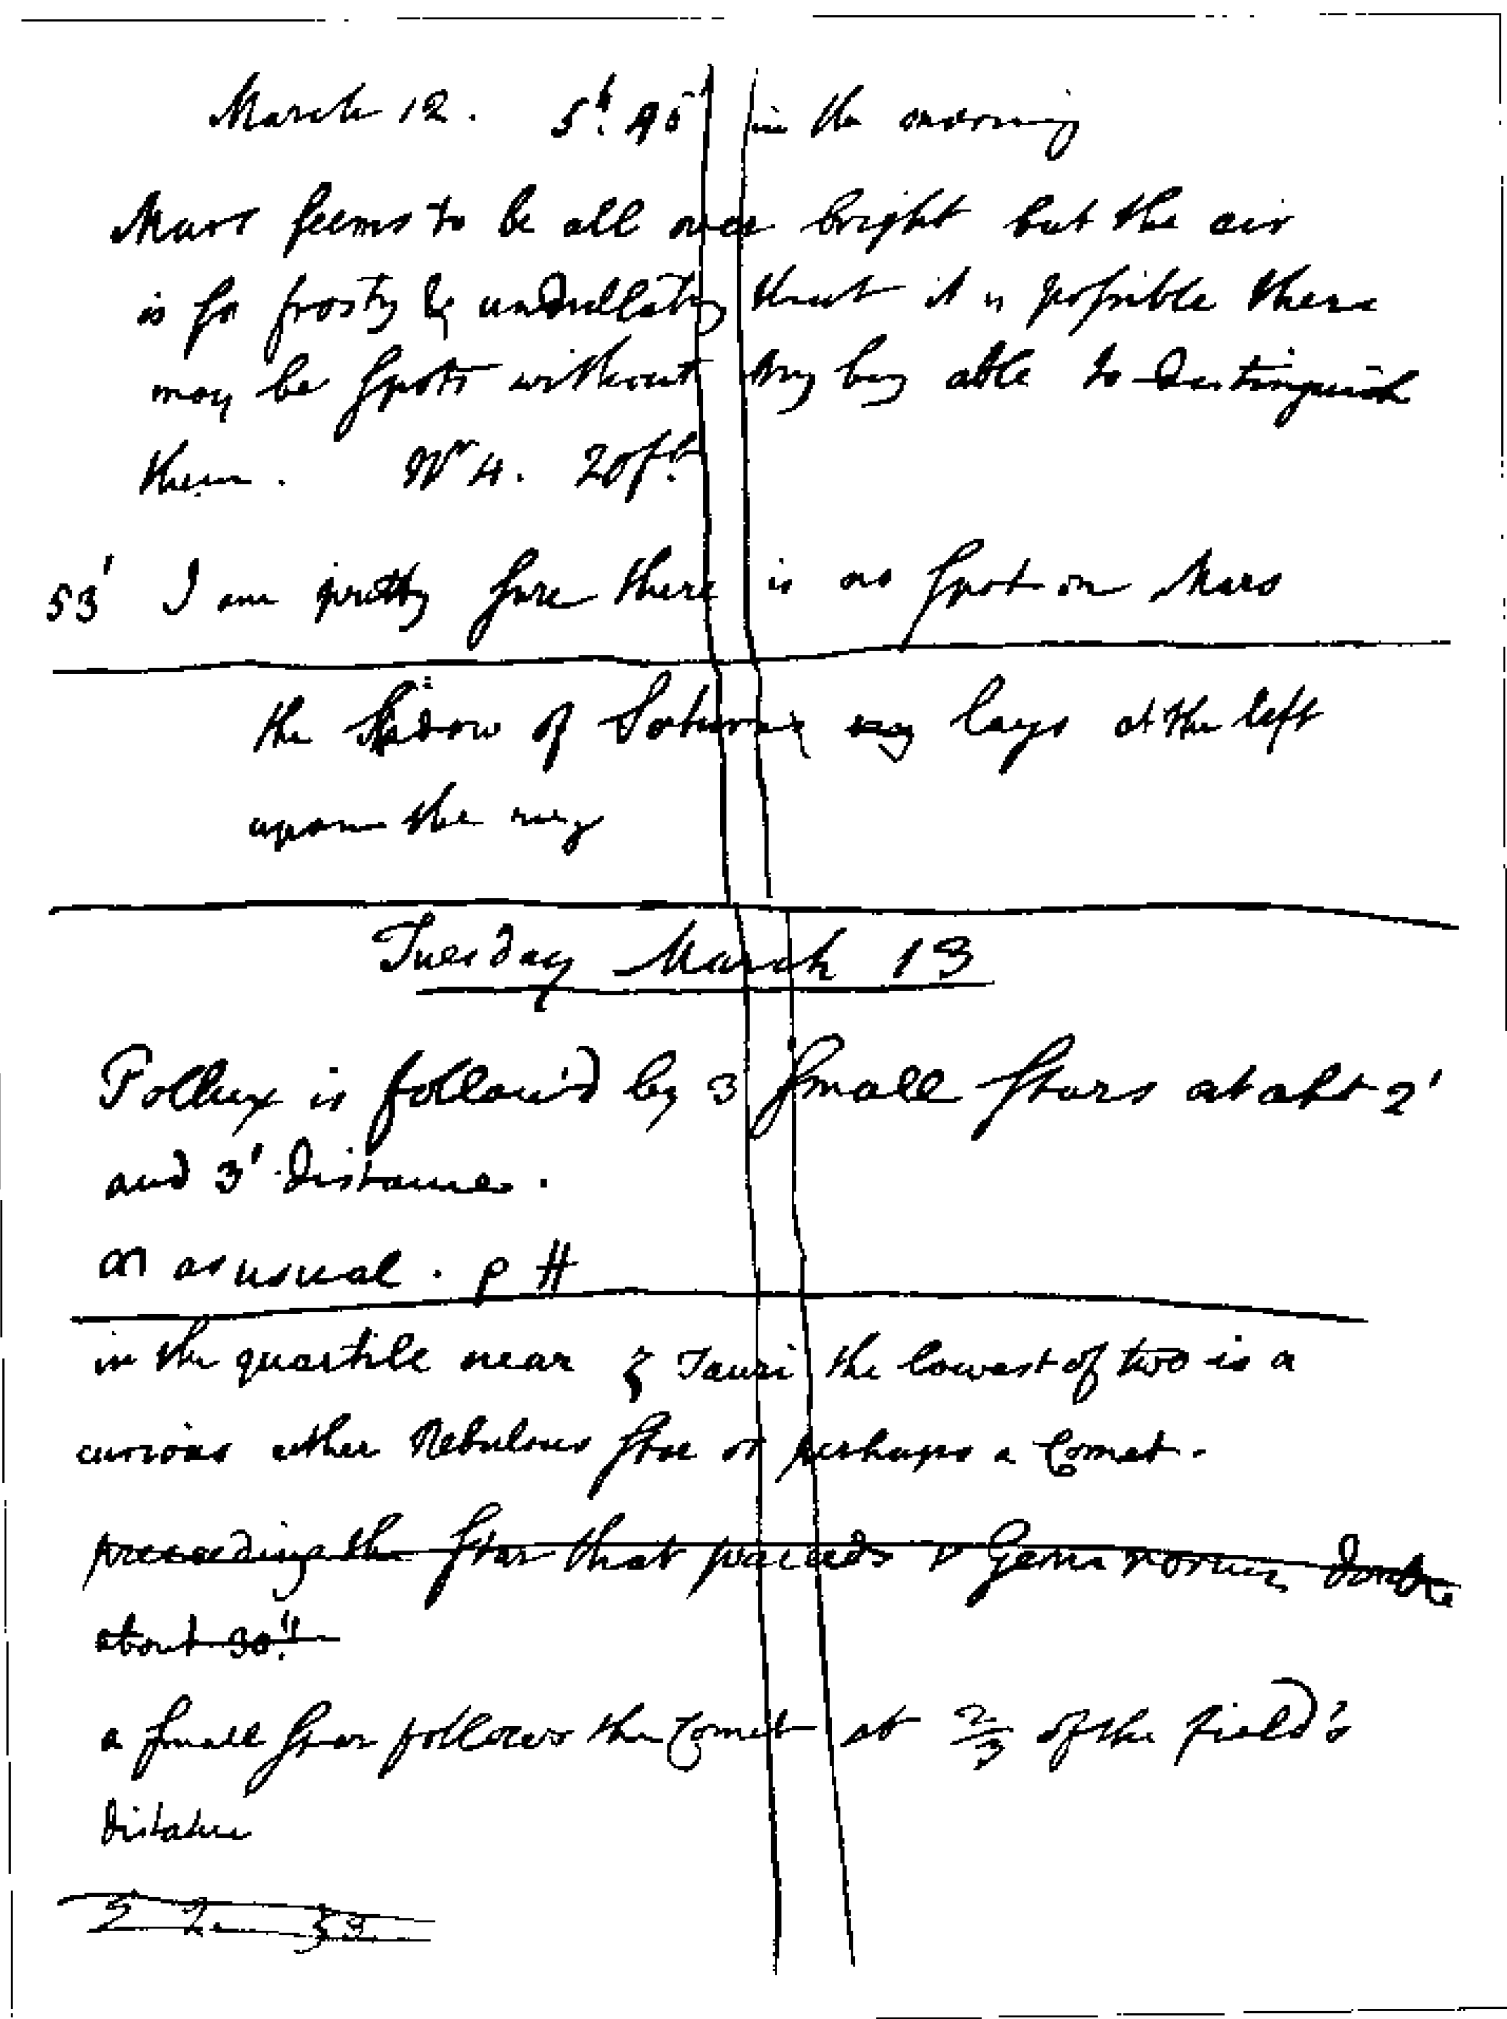 March 12. 5h. 45' in the morning
Mars seems to be all over bright but the air
is so frosty & undullating that it is possible there
may be spots without my being able to distinguish
them. 20 ft.
53' I am pretty sure there is no spot on Mars
the Shadow of Saturn lays at the left
upon the ring
Tuesday March 13
Pollux is follow'd by 3 small stars at abt 2'
and 3' distance.
as usual. p H
in the quartile near ζ Tauri the lowest of two is a
curious either Nebulous star or perhaps a Comet.
preceeding the star that preceeds Geminorum double
about 30"
a small star follows the Comet at 2/3 of the field's
distance